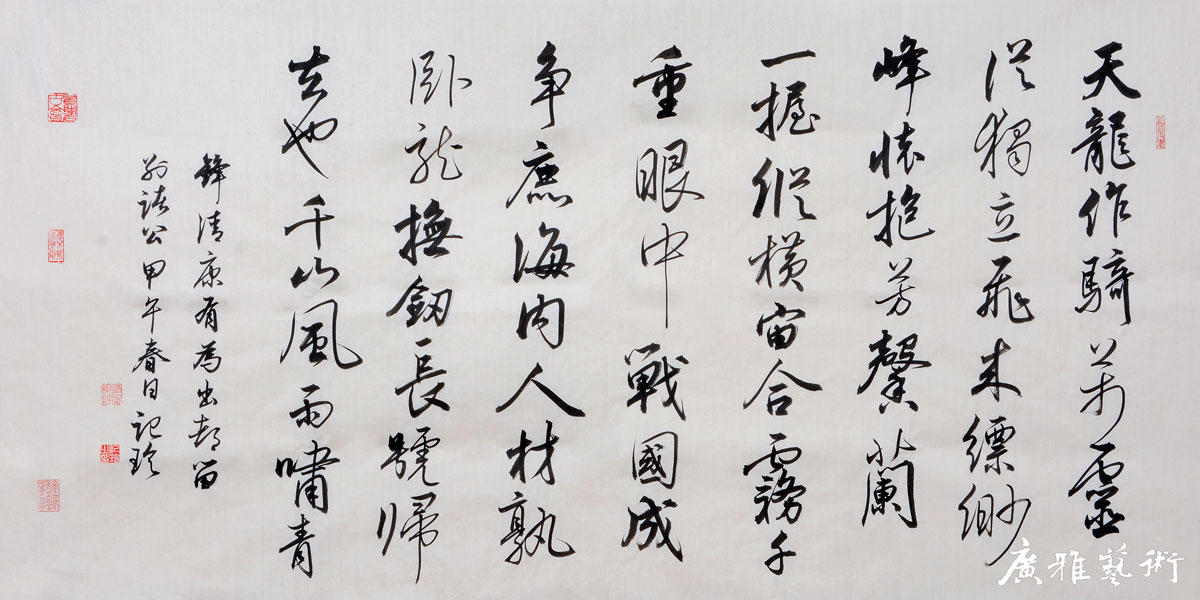 天龍作騎万靈
從獨立飛来縹緲
峰懷抱芳馨蘭
一握縱橫宙合霧千
重眼中戰國成
争鹿海内人材孰
卧龍撫釼長號歸
去也千山風雨嘯青
鋒清康有為出都留
别諸公甲午春日記
廣雅藝術